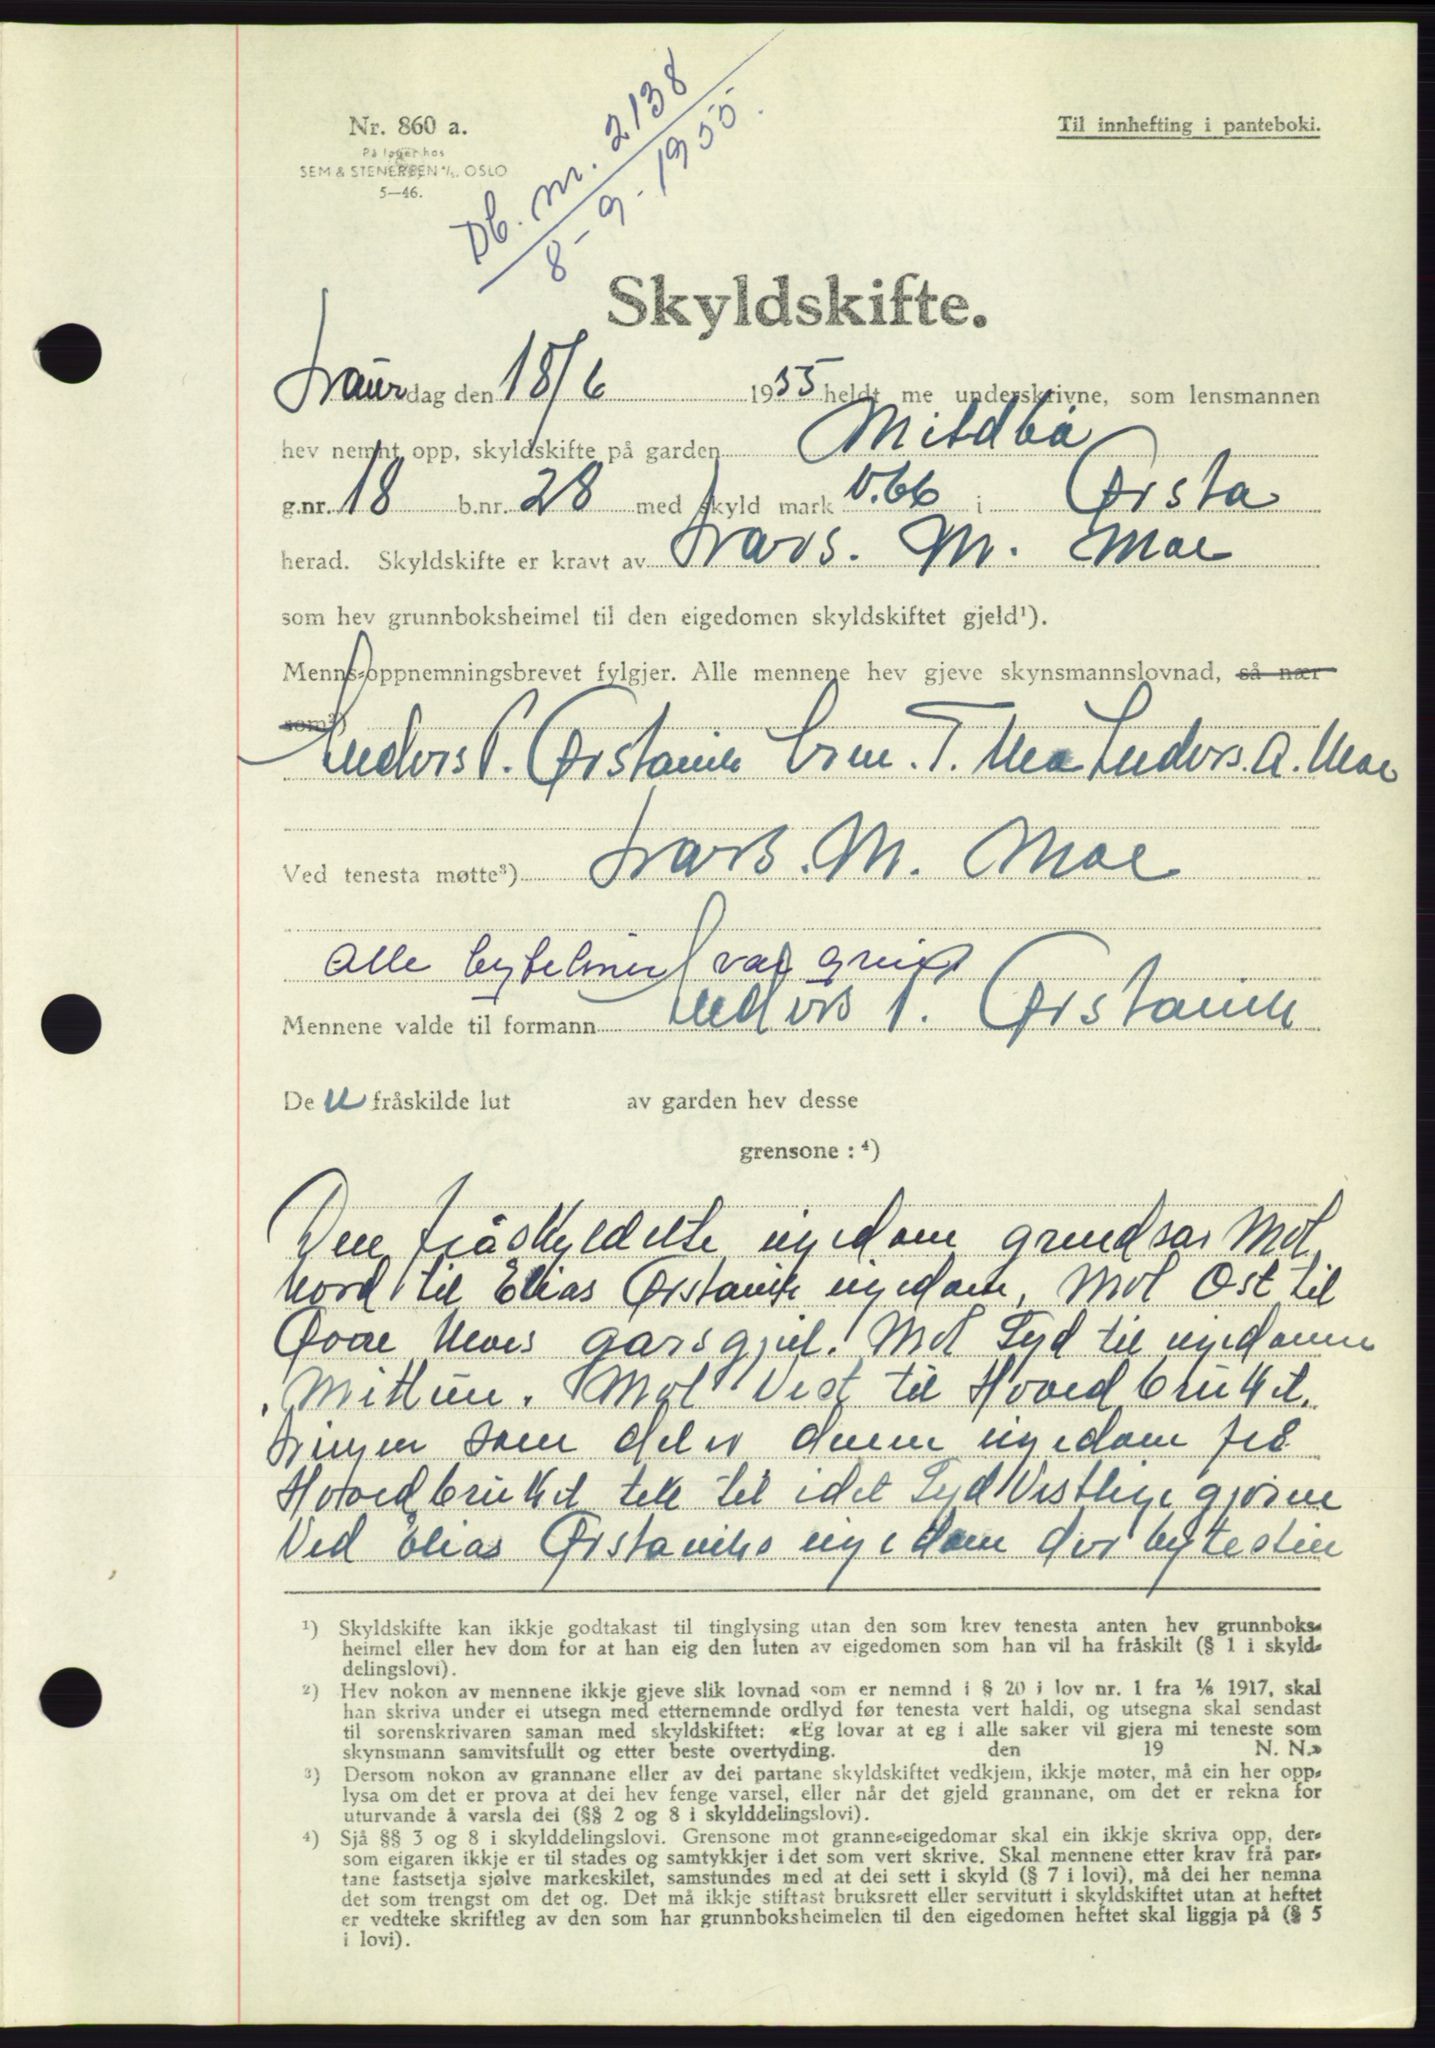 Nr. 860 a.
På lager hos
SEM & STENERSEN A/S. OSLO
5—46.
Db. nr. 2138
8-9-1955.
Til innhefting i panteboki.
Skyldskifte.
Laurdag den 18/6 1955 heldt me underskrivne, som lensmannen
hev nemnt opp, skyldskifte på garden Mitdbø
g.nr. 18 b.nr. 28 med skyld mark 0.66 i Ørsta
herad. Skyldskifte er kravt av Lars. M. Moe
som hev grunnboksheimel til den eigedomen skyldskiftet gjeld¹).
Menns-oppnemningsbrevet fylgjer. Alle mennene hev gjeve skynsmannslovnad, så nær
som²)
Anders P. Ørstavik T. Moe Anders. A. Moe
Ved tenesta møtte³) Lars. M. Moe
Alle bytelinier var
Mennene valde til formann Anders P. Ørstavik
De n fråskilde lut av garden hev desse
grensone : ⁴)
Den fråskyldelte eigedom grendsar Mot
Nord til Elias Ørstavik eigedom, Mot Ost til
Moes garsgjel. Mot Syd til eigedomen
Mittun. Mot Vest til Hovedbruket.
Lingen som deler denne eigedom frå
Hovedbruket tek til i det Syd Vestlige gjørne
Ved Elias Ørstaviks eigedom der bytestein
¹) Skyldskifte kan ikkje godtakast til tinglysing utan den som krev tenesta anten hev grunnboks-
heimel eller hev dom for at han eig den luten av eigedomen som han vil ha fråskilt (§ 1 i skyld-
delingslovi).
²) Hev nokon av mennene ikkje gjeve slik lovnad som er nemnd i § 20 i lov nr. 1 fra ⅙ 1917, skal
han skriva under ei utsegn med etternemnde ordlyd før tenesta vert haldi, og utsegna skal sendast
til sorenskrivaren saman med skyldskiftet: «Eg lovar at eg i alle saker vil gjera mi teneste som
skynsmann samvitsfullt og etter beste overtyding. den 19 N. N.»
³) Dersom nokon av grannane eller av dei partane skyldskiftet vedkjem, ikkje møter, må ein her opp-
lysa om det er prova at dei hev fenge varsel, eller når det gjeld grannane, om det er rekna for
uturvande å varsla dei (§§ 2 og 8 i skylddelingslovi).
⁴) Sjå §§ 3 og 8 i skylddelingslovi. Grensone mot granne-eigedomar skal ein ikkje skriva opp, der-
som eigaren ikkje er til stades og samtykkjer i det som vert skrive. Skal mennene etter krav frå par-
tane fastsetja sjølve markeskilet, samstundes med at dei sett i skyld (§ 7 i lovi), må dei her nemna
det som trengst om det og. Det må ikkje stiftast bruksrett eller servitutt i skyldskiftet utan at heftet
er vedteke skriftleg av den som har grunnboksheimelen til den eigedomen heftet skal liggja på (§ 5
i lovi).